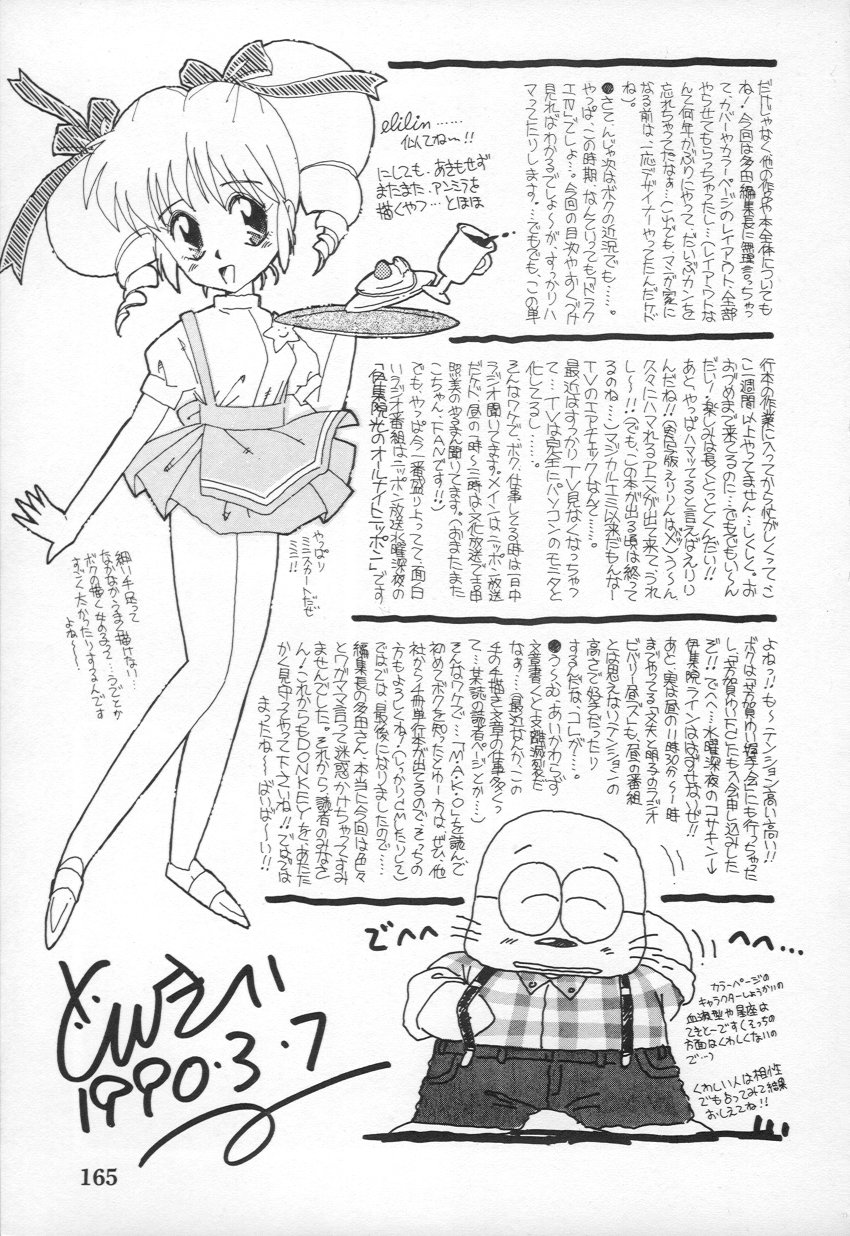 だけじゃなく他の作品や本全体についても
ね!今回は多田編集長に無理言っちゃっ
て、カバーやカラーページのレイアウト全部
やらせてもらっちゃったし…(レイアウトな
んて何年かぶりにやって、だいぶカンを
忘れちゃってたなぁ…(ヘ)でもマンガ家に
なる前は、一応デザイナーやってたんだけド
ね)。
●さて、んじゃ次はボクの近況でも……。
やっぱ、この時期なんといっても『ドラク
エⅣ』でしょ…。今回の目次やおくづけ
見ればわかるでしょーが、すっかりハ
マってたりします。…でもでも、この単
行本の作業に入ってから忙がしくって、こ
こ二週間以上やってません…しくしく。お
おづめまで来てるのに…でもでもい〜ん
だい!楽しみは長くとっとくんだい!!
あと、やっぱハマッてると言えばえりり
んだね!!(実写版えりりんは××)う〜ん、
久々にハマれるアニメが出て来て、うれ
し〜!!(でも、この本が出る頃は終って
るのね…)マジカルエミ以来だもんなー
TVのエアチェックなんて……。
最近はすっかりTV見なくなっちゃっ
て…TVは完全にパソコンのモニタと
化してるし……。
そんなワケで、ボク、仕事してる時は一日中
ラジオ聞いてます。メインはニッポン放送
だけド、昼の一時〜三時は文化放送で吉田
照美のやるまん聞いてます。(おまたまた
こちゃん、FANです!!)
でも、やっぱ今一番盛り上ってて面白
いラジオ番組はニッポン放送水曜深夜の
「伊集院光のオールナイトニッポン」です
よねっ!!も〜テンション高い高い!!
ボクは「芳賀ゆい握手会」にも行っちゃった
し、「芳賀ゆいFC」にも入会申し込みした
ぞ!!でへへ…水曜深夜のコサキン→
伊集院ラインははずせないゼ!!
あと、実な昼の11時30分〜一時
までやってる「文夫と明子のラジオ
ビバリー昼ズ」も、昼の番組
とは思えないテンションの
高さで好きだったり
するんだな、コレが…。
●う〜む、あいかわらず
文章書くと支離滅裂だ
なぁ…(最近なんか、この
手の手描き文章の仕事多くっ
て…某誌の読者ページとか…)
そんなワケで…「MA・KO」を読んで
初めてボクを知ったとゆー方は、ぜひ、他
社から4冊単行本が出てるのでそっちの
方もよろしくね!(しっかりCMしたりして)
ではでは、最後になりましたので……
編集長の多田さん、本当に今回は色々
とワガママ言って迷惑かけちゃってすみ
ませんでした。それから読者のみなさ
ん!これからもDONKEYを、あたた
かく見守ってやって下さいね!!ではでは
まったね〜〜ばいば〜い!!
elilin……
似てね〜!!
にしても、あきもせず
またまた、アンミラを
描くやつ…とほほ
やっぱり
ミニスカートだぜ
ミニ!!
細い手足って
なかなかうまく描けない…
ボクの描く女の子って…うでとか
すごく太かったりするんです
よね〜〜。
でへへ
へへ…
カラーページの
キャラクターしょうかいの
血液型や星座は
てきとーです(そっちの
方面はくわしくないの
で…)
くわしい人は相性
でも占ってみて結果
おしえてね!!
1990・3・7
165